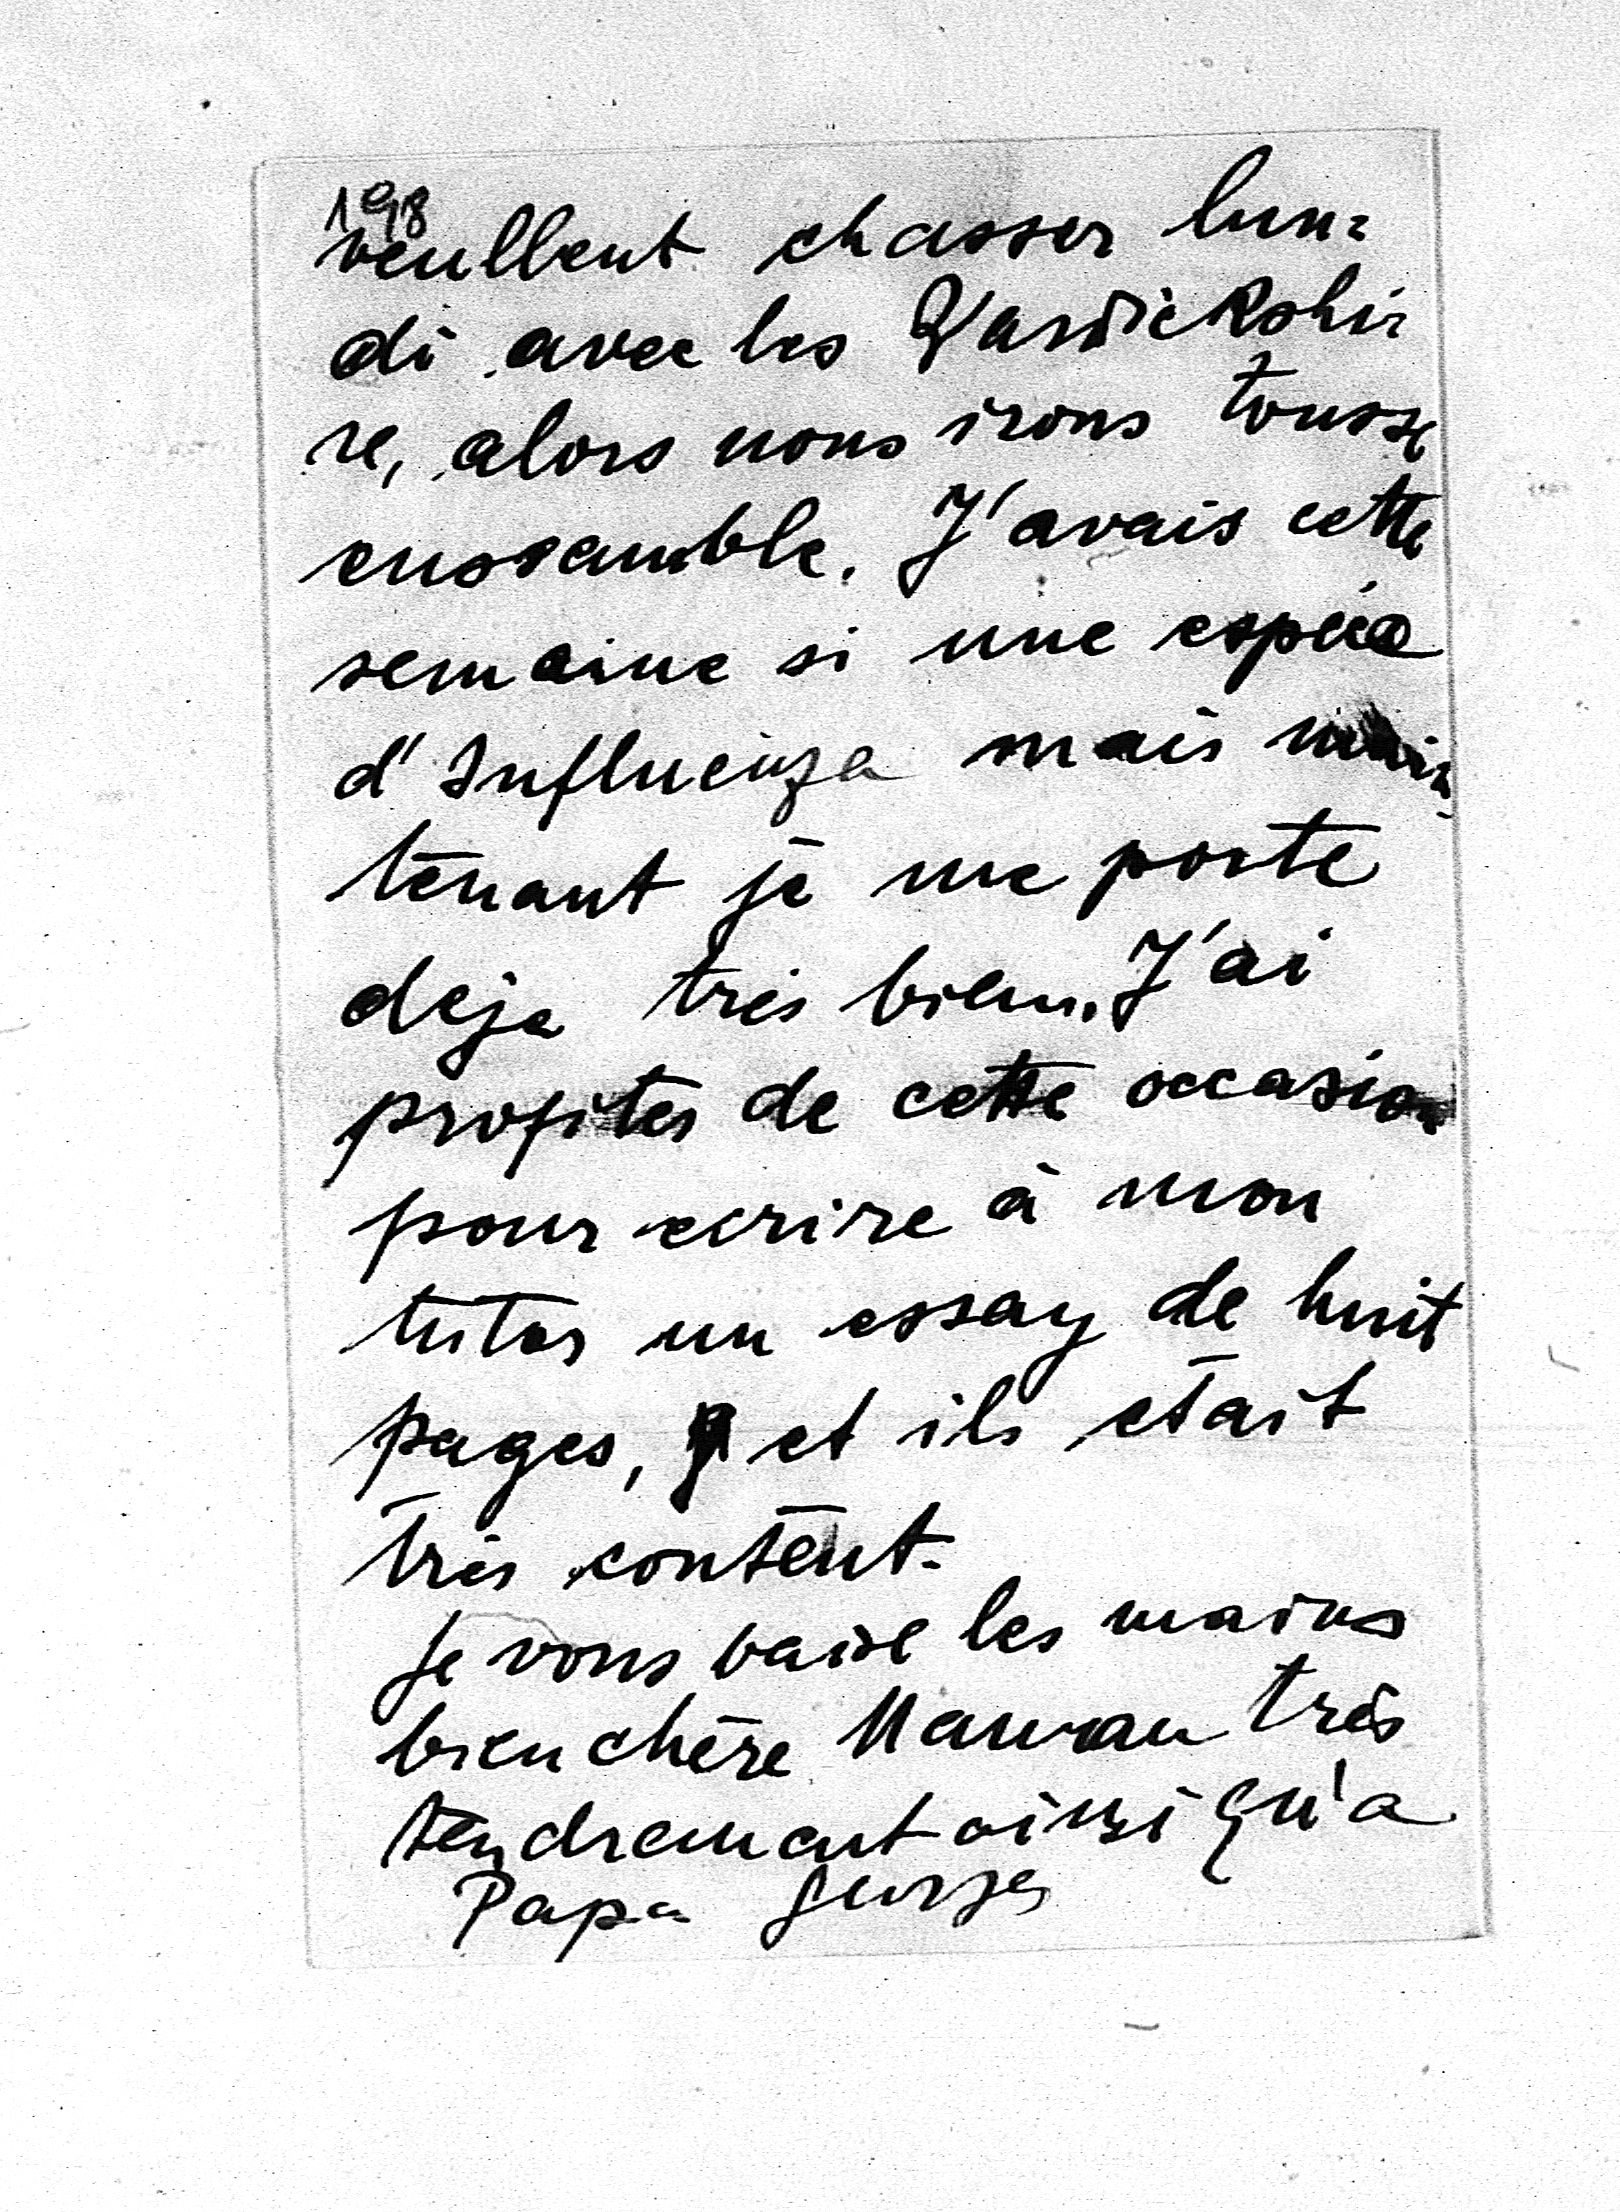 198
veullent chasser lun=
di avec les Warwickshi
re, alors nous irons touss
enssamble. J'avais cette
semaine si une espéce
d'Influenza mais main
tenant je me porte
deja très bien. J'ai
profiter de cette occasion
pour ecrire à mon
tutor un essay de huit
pages, et ils était
très content.
Je vous baise les mains
bien chère Maman très
tendrement ainsi qu'a
Papa Georges